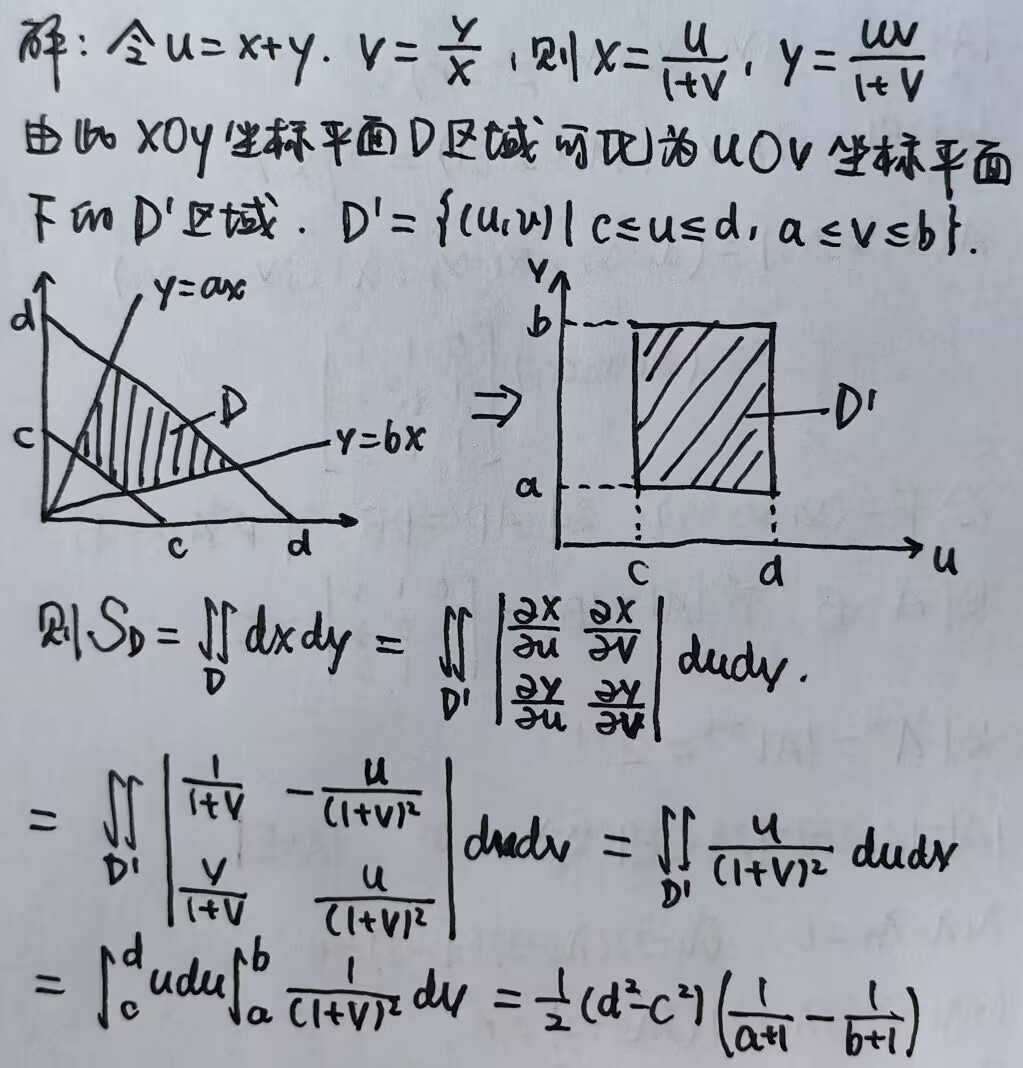 解：令u=x+y. v=y/x，则x=u/(1+v)，y=uv/(1+v)
由此xOy坐标平面D区域可化为uOv坐标平面
下的D'区域．D'={(u,v)|c≤u≤d, a≤v≤b}.
d y=ax D c y=bx c d
⇒
v b D' a c d u
则S_D=∬_D dxdy=∬_D' |∂x/∂u ∂x/∂v; ∂y/∂u ∂y/∂v| dudv.
=∬_D' |1/(1+v) -u/(1+v)²; v/(1+v) u/(1+v)²| dudv=∬_D' u/(1+v)² dudv
=∫_c^d udu∫_a^b 1/(1+v)² dv=1/2(d²-c²)(1/(a+1)-1/(b+1))